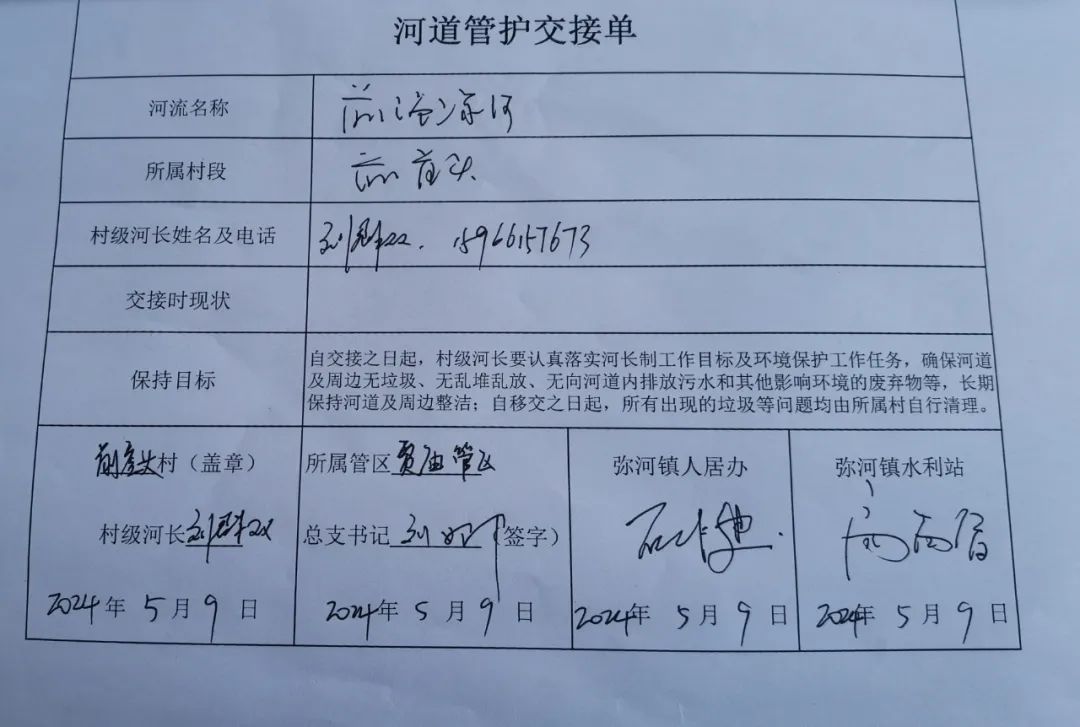 河道管护交接单
河流名称
所属村段
村级河长姓名及电话 刘群双. 15966157673
交接时现状
保持目标
自交接之日起，村级河长要认真落实河长制工作目标及环境保护工作任务，确保河道
及周边无垃圾、无乱堆乱放、无向河道内排放污水和其他影响环境的废弃物等，长期
保持河道及周边整洁；自移交之日起，所有出现的垃圾等问题均由所属村自行清理。
村（盖章）
村级河长 刘群双
2024年 5月 9日
所属管区 贾庙管区
总支书记 刘 （签字）
2024年 5月 9日
弥河镇人居办
2024年 5月 9日
弥河镇水利站
2024年 5月 9日